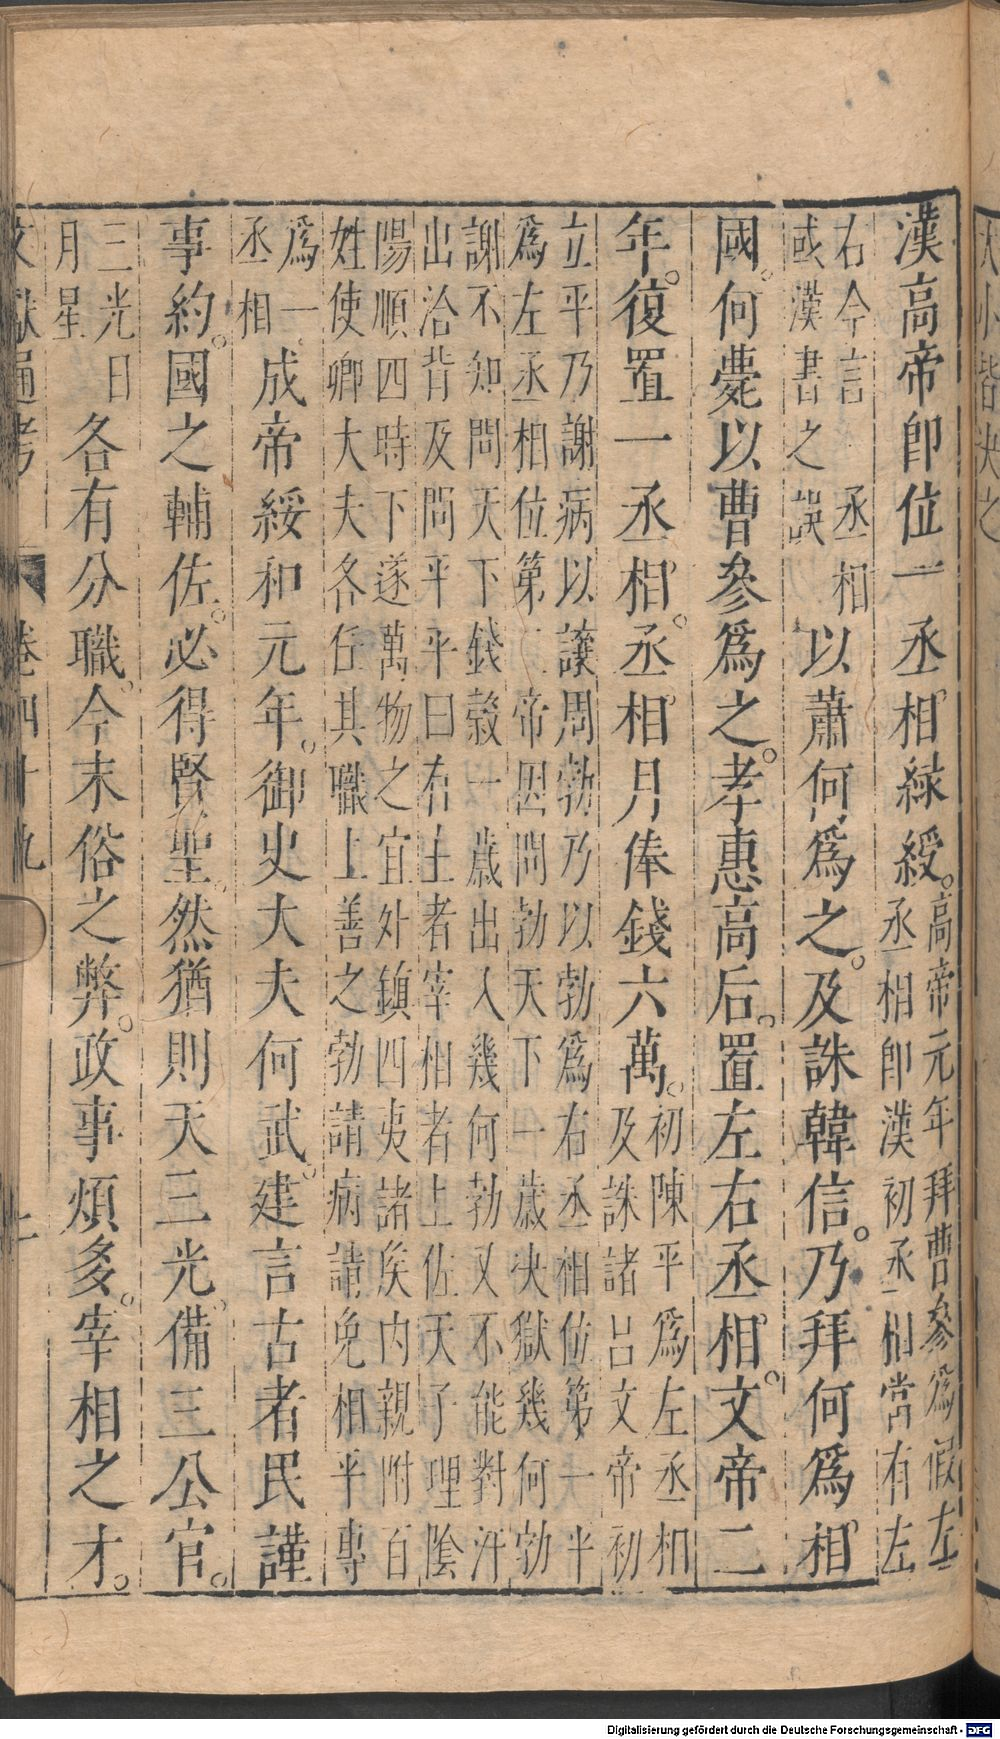 大小皆決之
漢高帝即位一丞相綠綬。
高帝元年拜曹參爲假左
丞相即漢初丞相當有左
右今言丞相
或漢書之誤
以蕭何爲之。及誅韓信。乃拜何爲相
國。何薨以曹參爲之。孝惠高后。置左右丞相。文帝二
年。復置一丞相。丞相月俸錢六萬。
初陳平爲左丞相
及誅諸呂文帝初
立平乃謝病以讓周勃乃以勃爲右丞相位第一平
爲左丞相位第二帝因問勃天下一歲決獄幾何勃
謝不知問天下錢穀一歲出入幾何勃又不能對汗
出洽背及問平平曰有主者宰相者上佐天子理陰
陽順四時下遂萬物之宜外鎮四夷諸侯内親附百
姓使卿大夫各任其職上善之勃請病請免相平專
爲一
丞相
成帝綏和元年。御史大夫何武。建言古者民謹
事約。國之輔佐。必得賢聖。然猶則天三光。備三公官。
三光日
月星
各有分職。今末俗之弊。政事煩多。宰相之才。
文獻通考 卷四十九
Digitalisierung gefördert durch die Deutsche Forschungsgemeinschaft - DFG